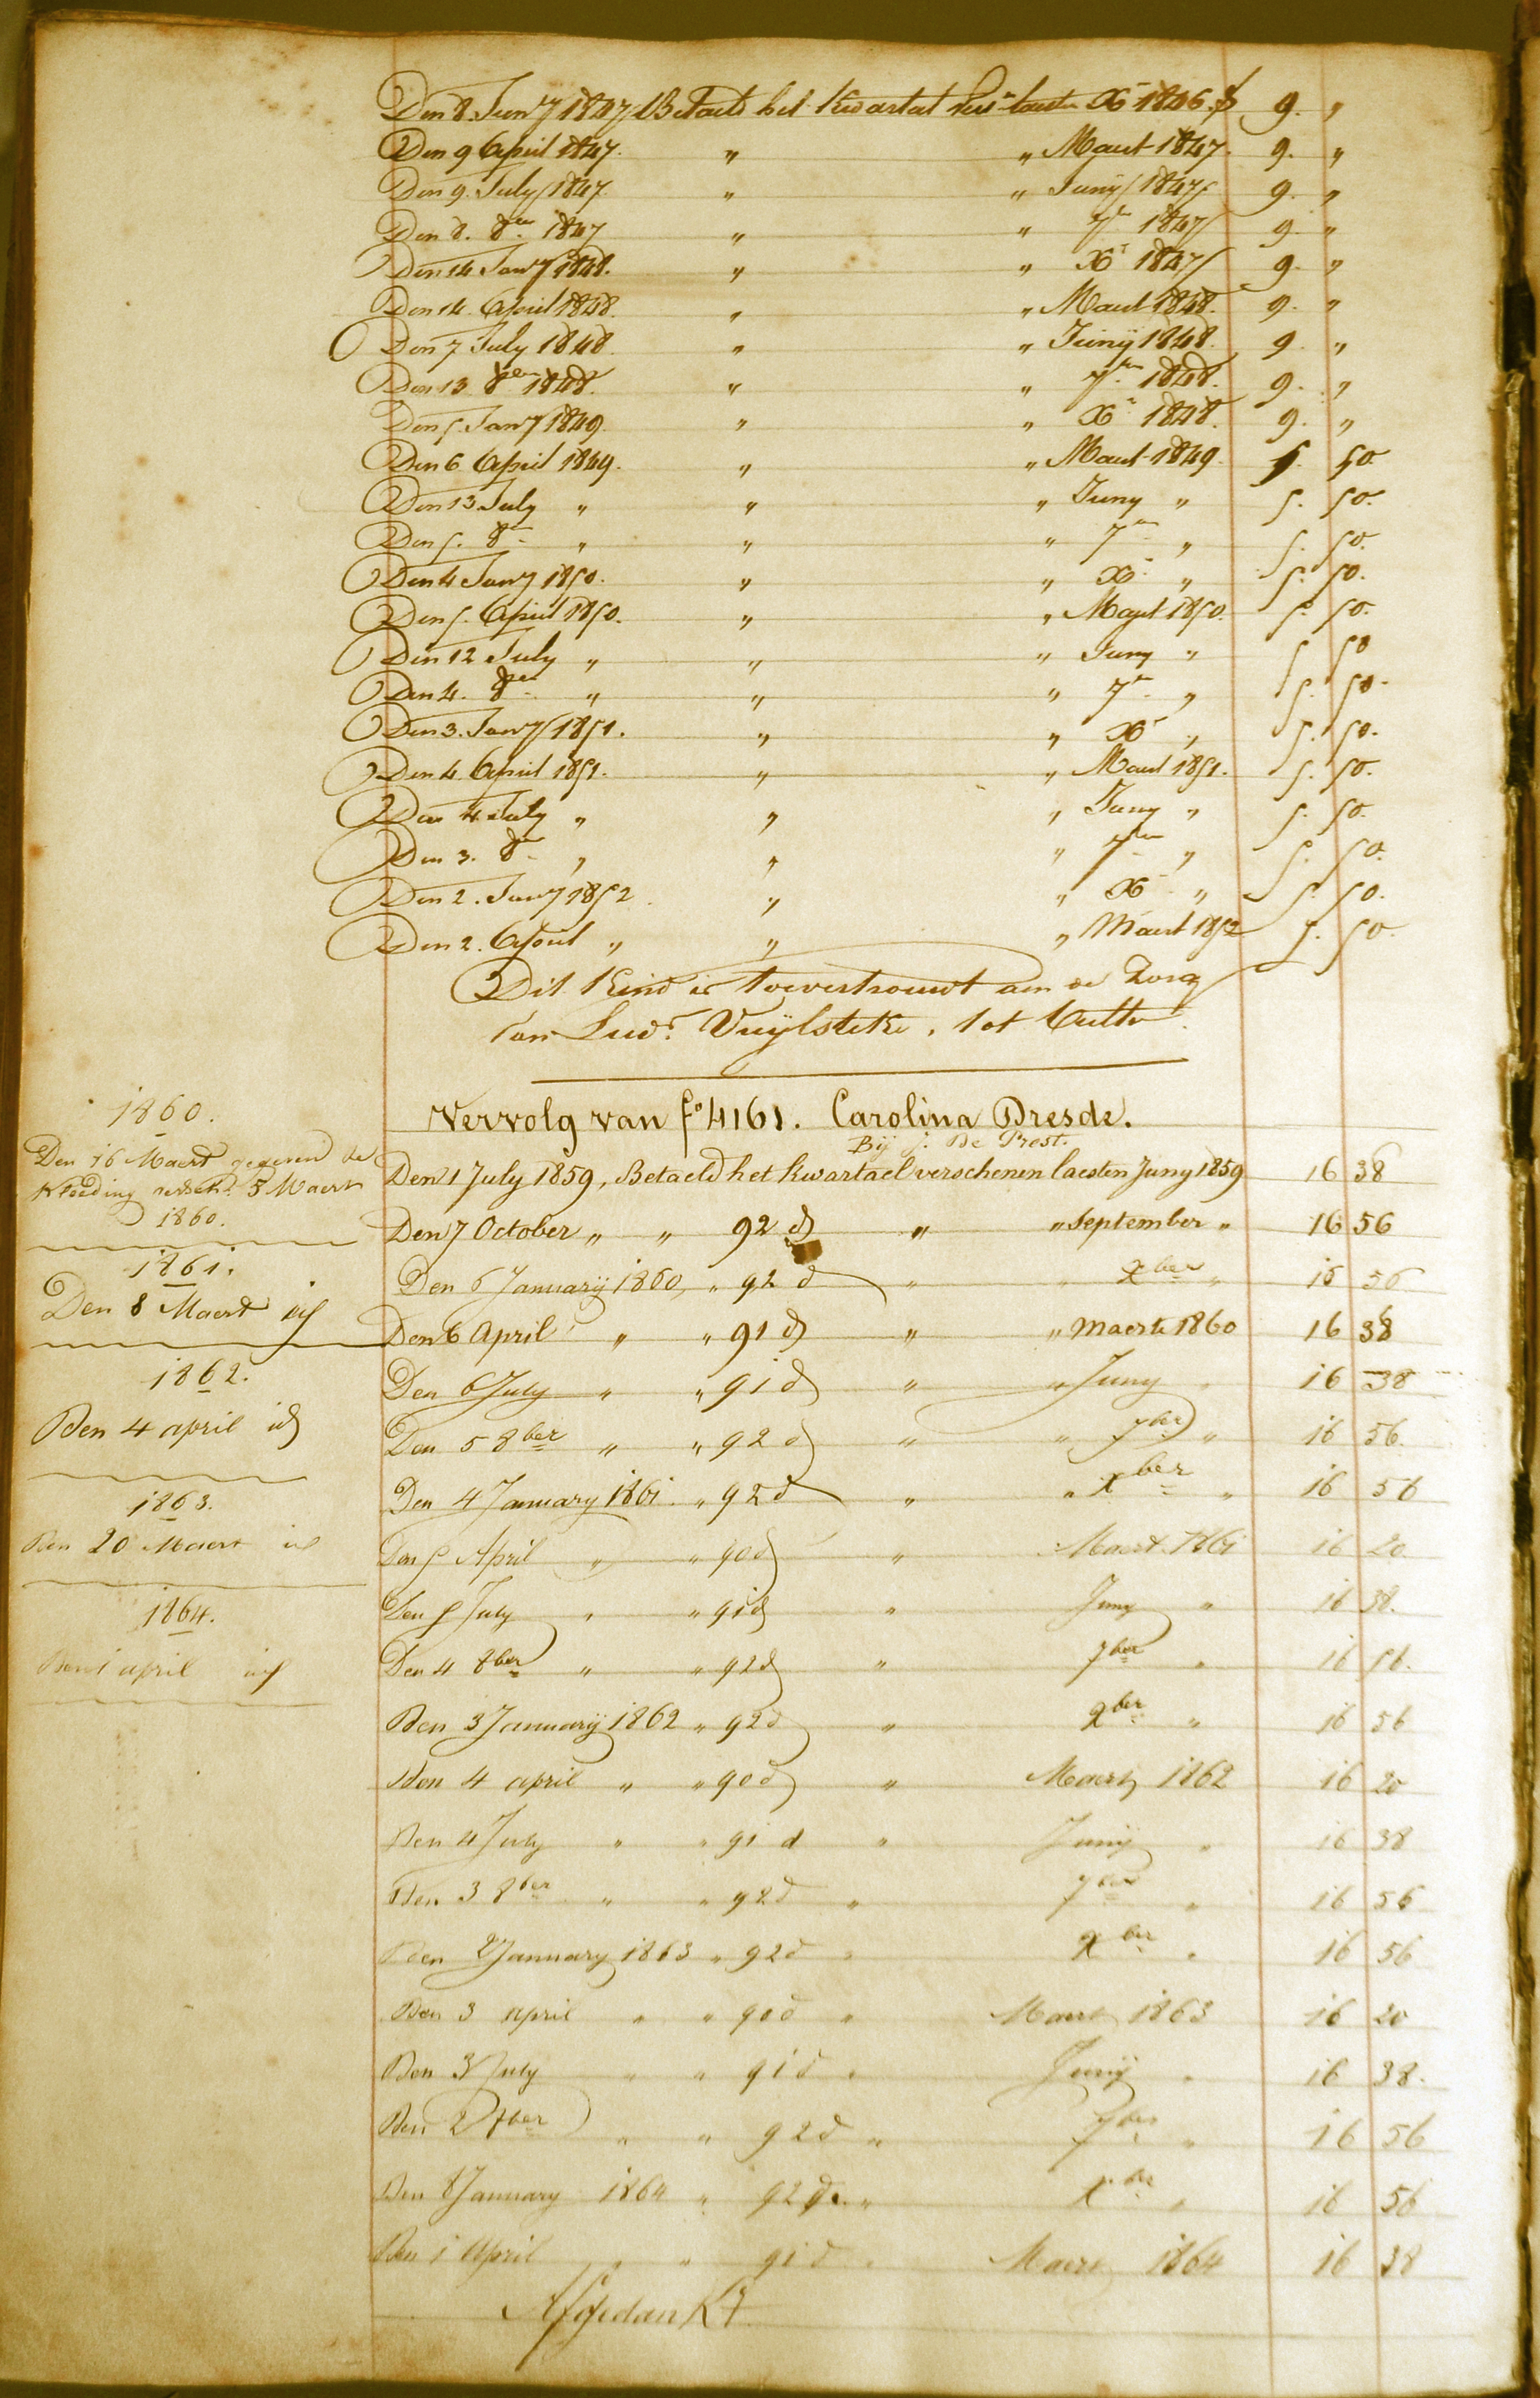 Den 8 Janry 1847 Betaeld het Kwartael laeste Xr 1846 9. "
Den 9 April 1847. " " Maert 1847. 9. "
Den 9. July 1847. " " Juny 1847 9. "
Den 8. 8er 1847 " " 7r 1847 9. "
Den 14 Janry 1848. " " Xr 1847 9. "
Den 14 April 1848. " " Maert 1848. 9. "
Den 7 July 1848. " " Junij 1848. 9. "
Den 13 8ber 1848. " " 7ber 1848. 9. "
Den 5 Janry 1849. " " Xr 1848. 9. "
Den 6 April 1849. " " Maert 1849 5. 50.
Den 13 July " " " Juny " 5. 50.
Den 5. 8er " " " 7er " 5. 50.
Den 4 Janry 1850. " " Xr " 5. 50.
Den 5. April 1850. " " Maert 1850. 5. 50.
Den 12 July " " " Juny " 5 50
Den 4. 8er " " " 7r " 5. 50.
Den 3. Janry 1851. " " Xr " 5. 50.
Den 4 April 1851. " " Maert 1851. 5. 50.
Den 4 July " " " Juny " 5. 50.
Den 3. 8r " " " 7ber " 5. 50.
Den 2. Janry 1852. " " Xr " 5. 50.
Den 2. April " " " Maert 1852 5. 50.
Dit Kind is toevertrouwt aen de Zorg
van Lud. Vuylsteke, tot
Vervolg van fo 4161. Carolina Dresde.
Bij J. De Prest.
Den 1 July 1859, Betaeld het kwartael verschenen laesten Juny 1859 16 38
Den 7 October " " 92 d " " September " 16 56
Den 6 Januarij 1860, " 92 d " " Xber " 16 56
Den 6 April " " 91 d " " Maerte 1860 16 38
Den 6 July " " 91 d " " Juny " 16 38
Den 5 8ber " " 92 d " " 7ber " 16 56.
Den 4 January 1861. " 92 d " " Xber " 16 56
Den 5 April " " 90 d " Maert 1861 16 20
Den 5 July " " 91 d " Juny " 16 38.
Den 4 8ber " " 92 d " 7ber " 16 56.
Den 3 Januarij 1862 " 92 d " Xber " 16 56
Den 4 april " " 90 d " Maert 1862 16 20
Den 4 July " " 91 d " Junij " 16 38
Den 3 8ber " " 92 d " 7ber " 16 56
Den 2 January 1863 " 92 d " Xber " 16 56
Den 3 april " " 90 d " Maert 1863 16 20
Den 3 July " " 91 d " Junij " 16 38.
Den 2 8ber " " 92 d " 7ber " 16 56
Den 8 January 1864 " 92 d. " Xber " 16 56
Den 1 April " " 91 d " Maert 1864 16 38
Afgedankt
1860.
Den 16 Maert gegeven de
Kleeding 3 Maert
1860.
1861.
Den 8 Maert id
1862.
Den 4 april id
1863.
Den 20 Maert id
1864.
Den 1 april id